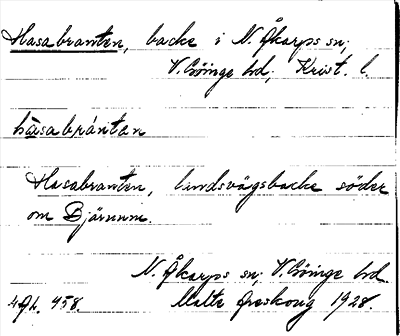 Hasabranten, backe i N. Åkarps sn,
V. Göinge hd, Krist. l.
hàsabrántan
Hasabranten, landsvägsbacke söder
om Bjärnum.
N. Åkarps sn, V. Göinge hd.
458. Malte Areskoug 1928.